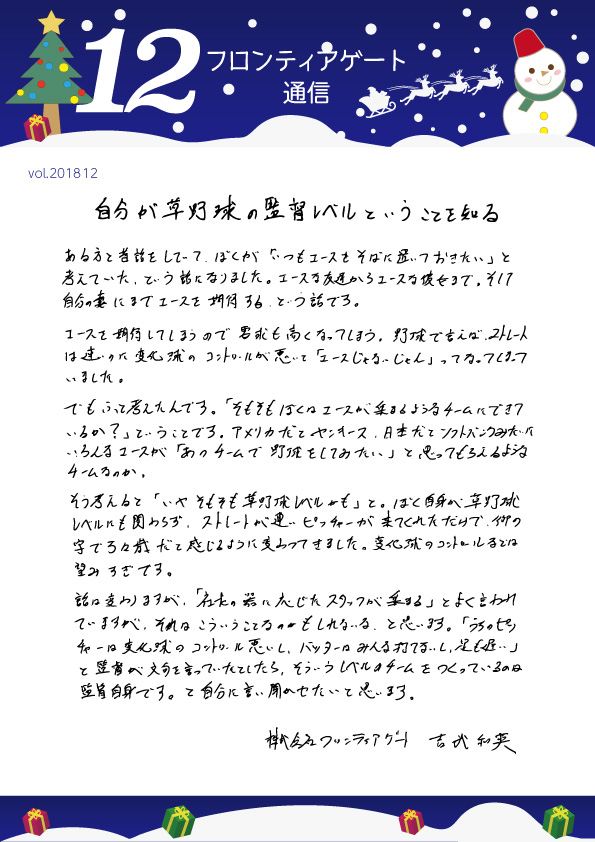 12
フロンティアゲート
通信
vol.201812
自分が草野球の監督レベルということを知る
ある方と昔話をしていて、ぼくが「いつもエースをそばに置いておきたい」と
考えていた、という話になりました。エースな友達からエースな彼女まで。そして
自分の妻にまでエースを期待する、という話です。
エースを期待してしまうので要求も高くなってしまう。野球で言えば、ストレート
は速いのに変化球のコントロールが悪いと「エースじゃないじゃん」ってなってしまって
いました。
でもふって考えたんです。「そもそもぼくはエースが集まるようなチームにできて
いるか?」ということです。アメリカだとヤンキース、日本だとソフトバンクみたいに
いろんなエースが「あのチームで野球をしてみたい」と思ってもらえるような
チームなのか。
そう考えると「いや そもそも草野球レベルかも」と。ぼく自身が草野球
レベルにも関わらず、ストレートが速いピッチャーが来てくれただけで、御の
字で万々歳だと感じるように変わってきました。変化球のコントロールなどは
望みすぎです。
話は変わりますが、「社長の器に応じたスタッフが集まる」とよく言われ
ていますが、それはこういうことなのかもしれないな、と思います。「うちのピッ
チャーは変化球のコントロール悪いし、バッターはみんな打てないし、足も遅い」
と監督が文句を言っていたとしたら、そういうレベルのチームをつくっているのは
監督自身です。と自分に言い聞かせたいと思います。
株式会社フロンティアゲート 吉武和英